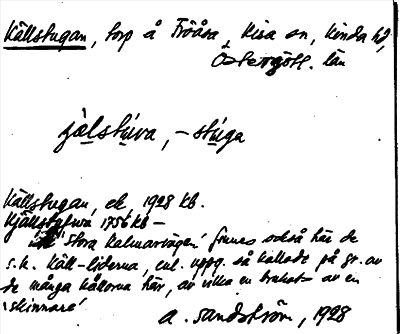 Källstugan, torp å Fröåsa, Kisa sn, Kinda hd,
Östergötl. län
jälstúva, -stúga
Källstugan, ek, 1928 kb.
Kjällstufwa 1756 kb –
'stora Kalmarvägen' finnes också här de
s.k. Käll-liderna, enl. uppg. så kallade på gr. av
de många källorna här, av vilka en brukats av en
'skinnare'
A. Sandström, 1928